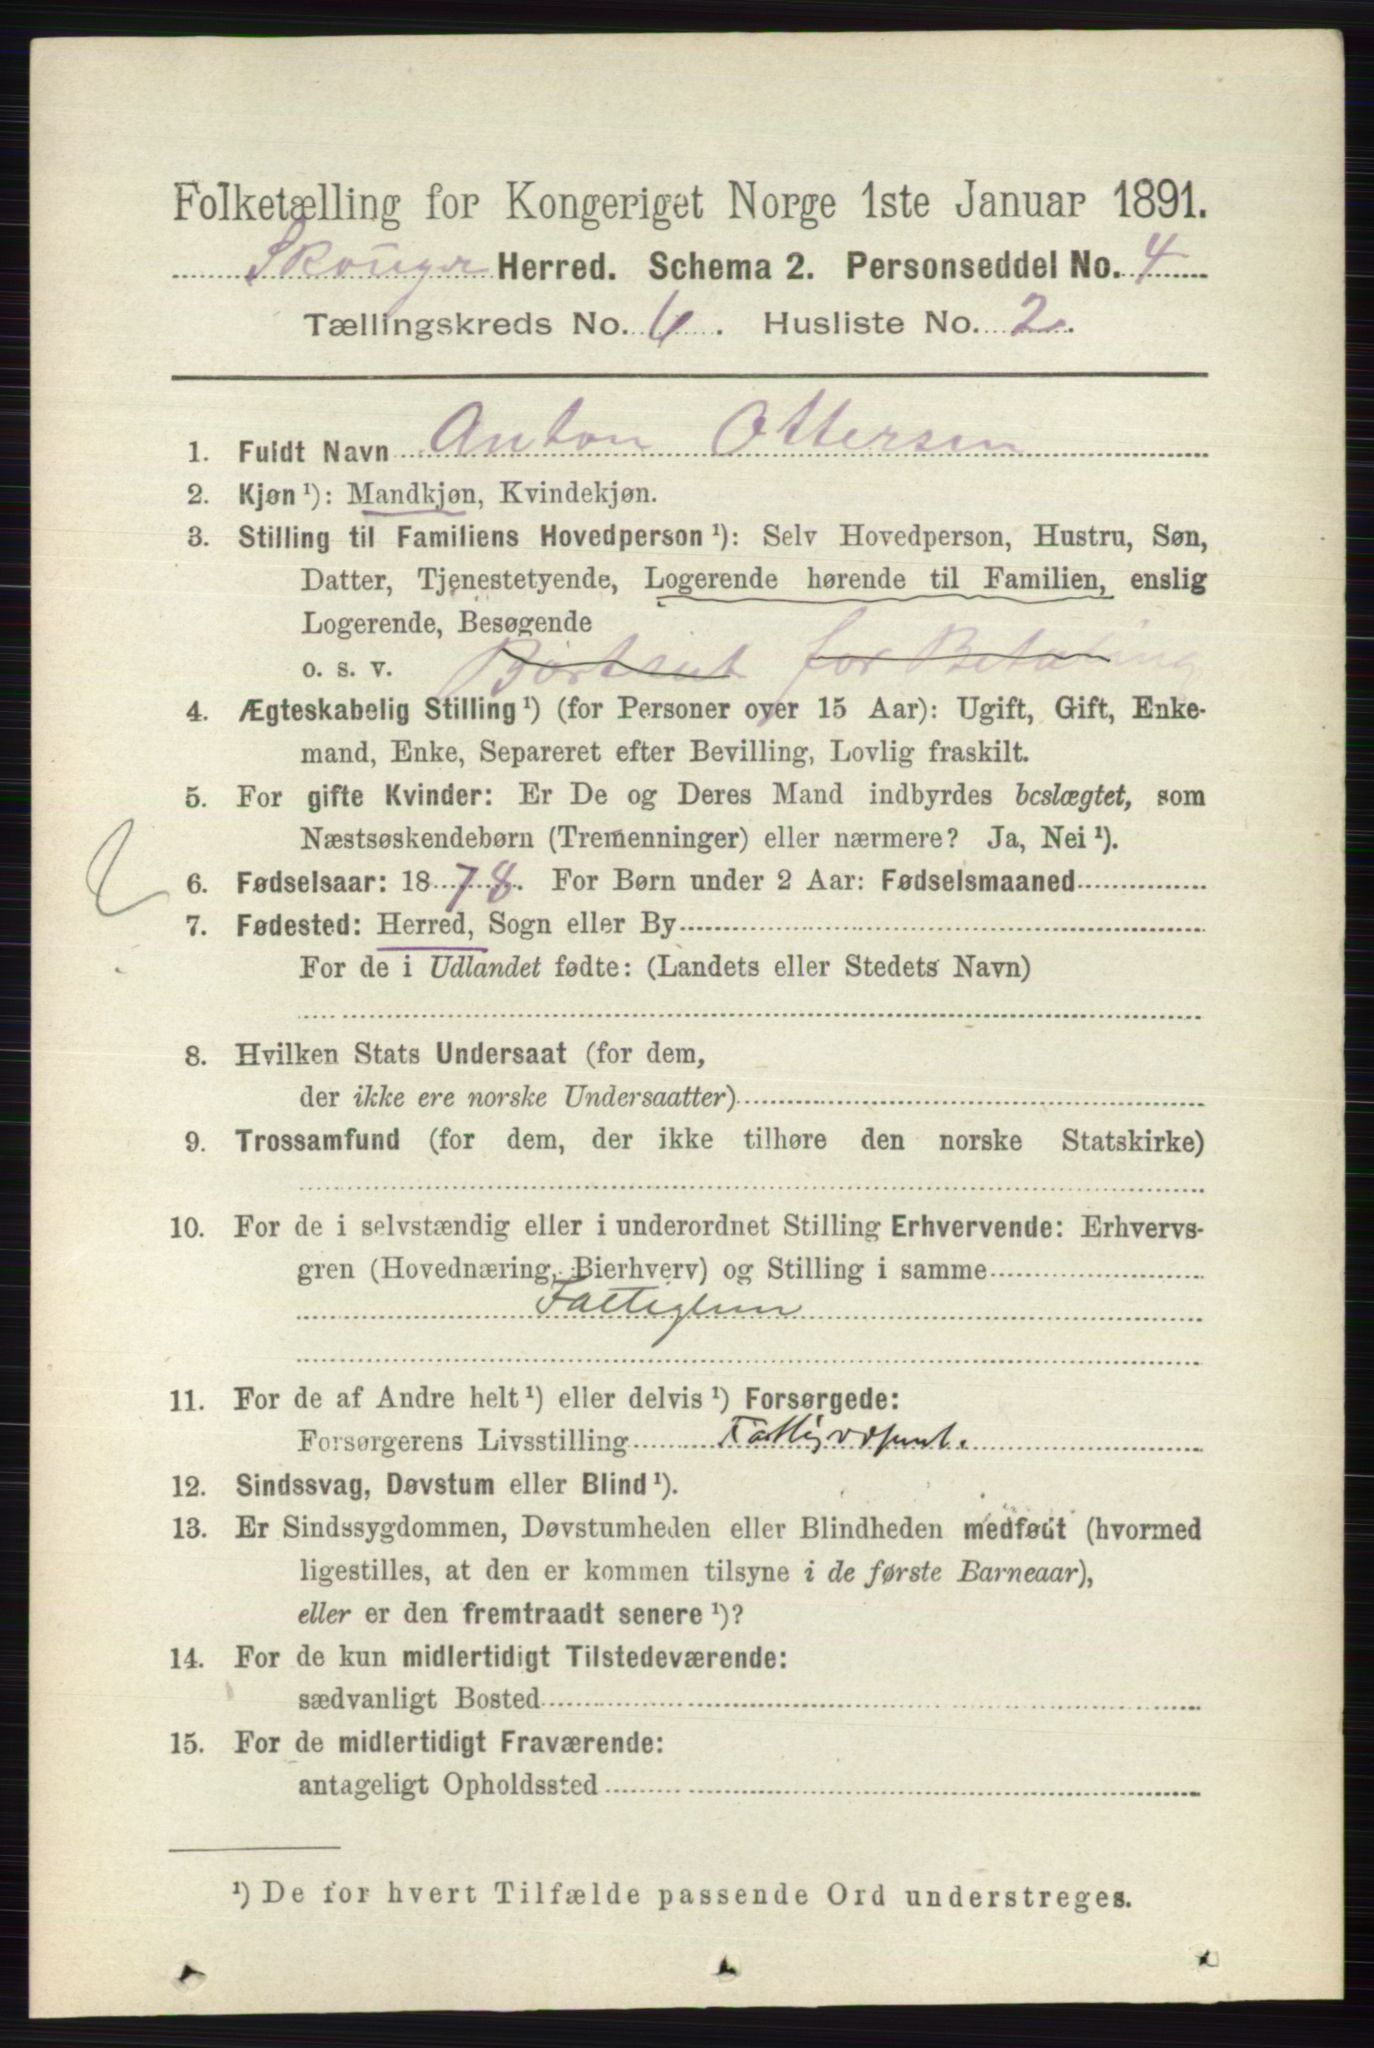 Folketælling for Kongeriget Norge 1ste Januar 1891.
Skouger Herred. Schema 2. Personseddel No. 4
Tællingskreds No. 6. Husliste No. 2.
1. Fuldt Navn Anton Ottersen
2. Kjøn ¹): Mandkjøn, Kvindekjøn.
3. Stilling til Familiens Hovedperson ¹): Selv Hovedperson, Hustru, Søn,
Datter, Tjenestetyende, Logerende hørende til Familien, enslig
Logerende, Besøgende
o. s. v. Bortsat for Betaling
4. Ægteskabelig Stilling ¹) (for Personer over 15 Aar): Ugift, Gift, Enke-
mand, Enke, Separeret efter Bevilling, Lovlig fraskilt.
5. For gifte Kvinder: Er De og Deres Mand indbyrdes beslægtet, som
Næstsøskendebørn (Tremenninger) eller nærmere? Ja, Nei ¹).
6. Fødselsaar: 1878. For Børn under 2 Aar: Fødselsmaaned
7. Fødested: Herred, Sogn eller By
For de i Udlandet fødte: (Landets eller Stedets Navn)
8. Hvilken Stats Undersaat (for dem,
der ikke ere norske Undersaatter)
9. Trossamfund (for dem, der ikke tilhøre den norske Statskirke)
10. For de i selvstændig eller i underordnet Stilling Erhvervende: Erhvervs-
gren (Hovednæring, Bierhverv) og Stilling i samme
Fattiglem
11. For de af Andre helt ¹) eller delvis ¹) Forsørgede:
Forsørgerens Livsstilling Fattigvæsenet.
12. Sindssvag, Døvstum eller Blind ¹).
13. Er Sindssygdommen, Døvstumheden eller Blindheden medfødt (hvormed
ligestilles, at den er kommen tilsyne i de første Barneaar),
eller er den fremtraadt senere ¹)?
14. For de kun midlertidigt Tilstedeværende:
sædvanligt Bosted
15. For de midlertidigt Fraværende:
antageligt Opholdssted
¹) De for hvert Tilfælde passende Ord understreges.